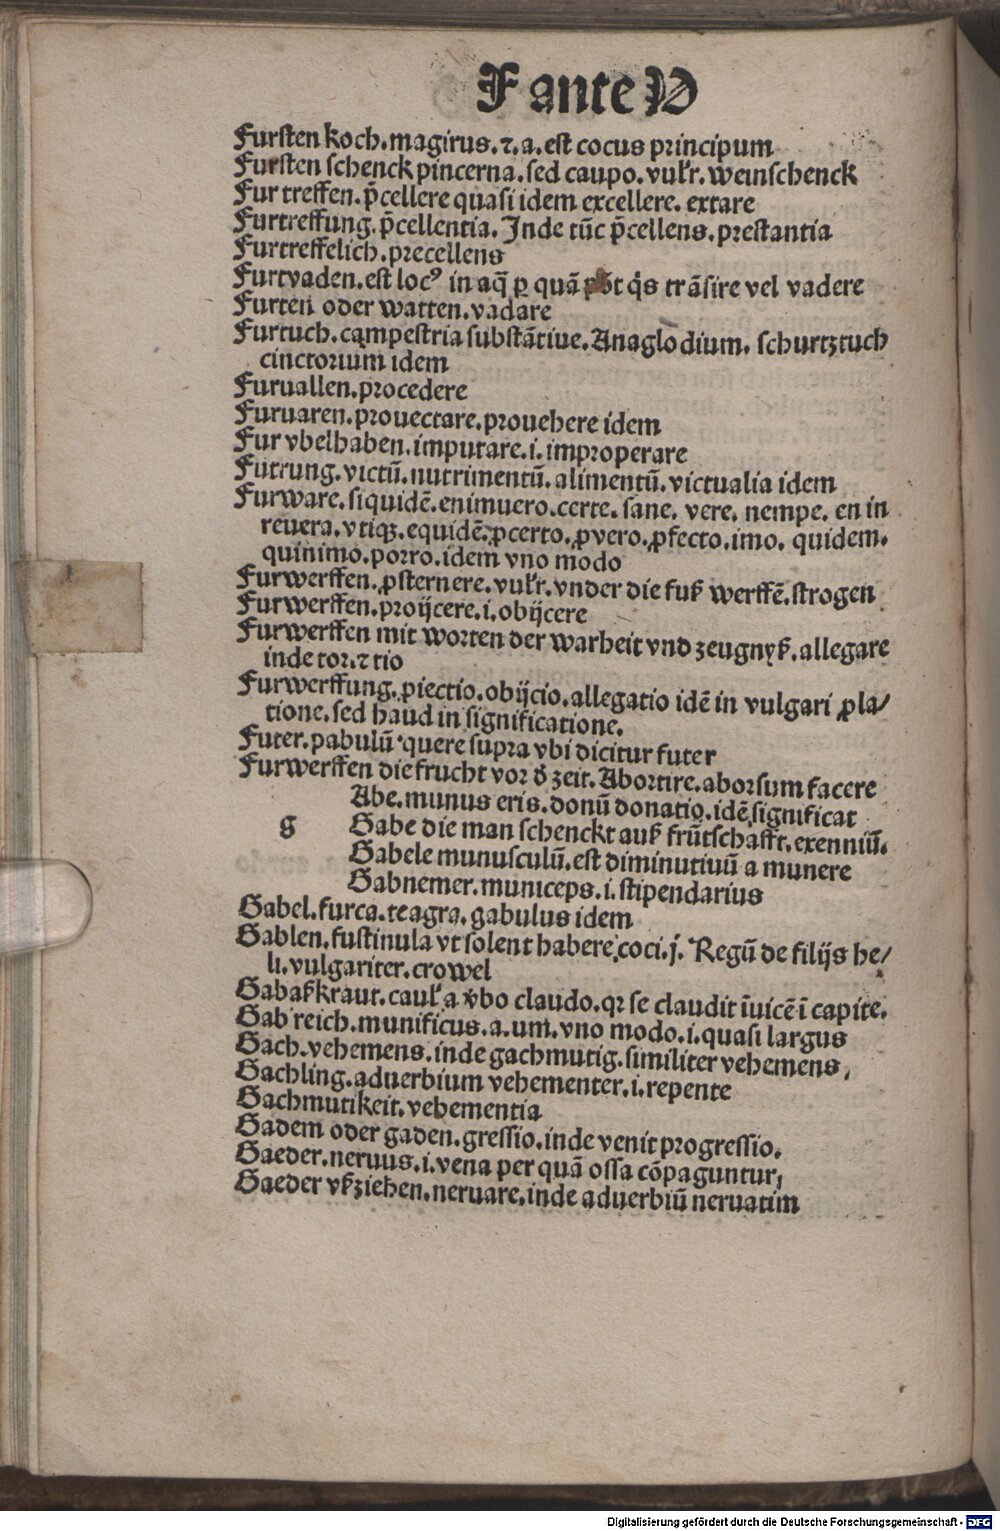 F ante V
Fursten koch.magirus.⁊.a.est cocus principum
Fursten schenck pincerna.sed caupo.vulr̄.weinschenck
Fur treffen.p̄cellere quasi idem excellere.extare
Furtreffung.p̄cellentia.Inde tūc p̄cellens.prestantia
Furtreffelich.precellens
Furtvaden.est locꝰ in aq̄ ꝑ quā pōt q̇s trāsire vel vadere
Furten oder watten.vadare
Furtuch.campestria substātiue.Anaglodium.schurtztuch
cinctorium idem
Furuallen.procedere
Furuaren.prouectare.prouehere idem
Fur vbelhaben.imputare.i.improperare
Futrung.victū.nutrimentū.alimentū.victualia idem
Furware.siquidē.enimuero.certe.sane.vere.nempe.en in
reuera.vtiqꝫ.equidē.ꝓcerto.ꝓvero.ꝓfecto.imo.quidem.
quinimo.porro.idem vno modo
Furwerffen.ꝓsternere.vulr̄.vnder die fuß werffē.strogen
Furwerffen.proijcere.i.obijcere
Furwerffen mit worten der warheit vnd zeugnyß.allegare
inde tor.⁊ tio
Furwerffung.ꝓiectio.obijcio.allegatio idē in vulgari ꝓla/
tione.sed haud in significatione.
Futer.pabulū.quere supra vbi dicitur futer
Furwerffen die frucht vor d̄ zeit.Abortire.aborsum facere
Abe.munus eris.donū donatio.idē significat
g Gabe die man schenckt auß frūtschafft.exenniū.
Gabele munusculū.est diminutiuū a munere
Gabnemer.municeps.i.stipendarius
Gabel.furca.teagra.gabulus idem
Gablen.fustinula vt solent habere coci.j.Regū de filijs he/
li.vulgariter.crowel
Gabaßkraut.caul̄ a v̄bo claudo.qꝛ se claudit īuicē ī capite.
Gab reich.munificus.a.um.vno modo.i.quasi largus
Gach.vehemens.inde gachmutig.similiter vehemens.
Gachling.aduerbium vehementer.i.repente
Gachmutikeit.vehementia
Gadem oder gaden.gressio.inde venit progressio.
Gaeder.neruus.i.vena per quā ossa cōpaguntur.
Gaeder vßziehen.neruare.inde aduerbiū neruatim
Digitalisierung gefördert durch die Deutsche Forschungsgemeinschaft - DFG